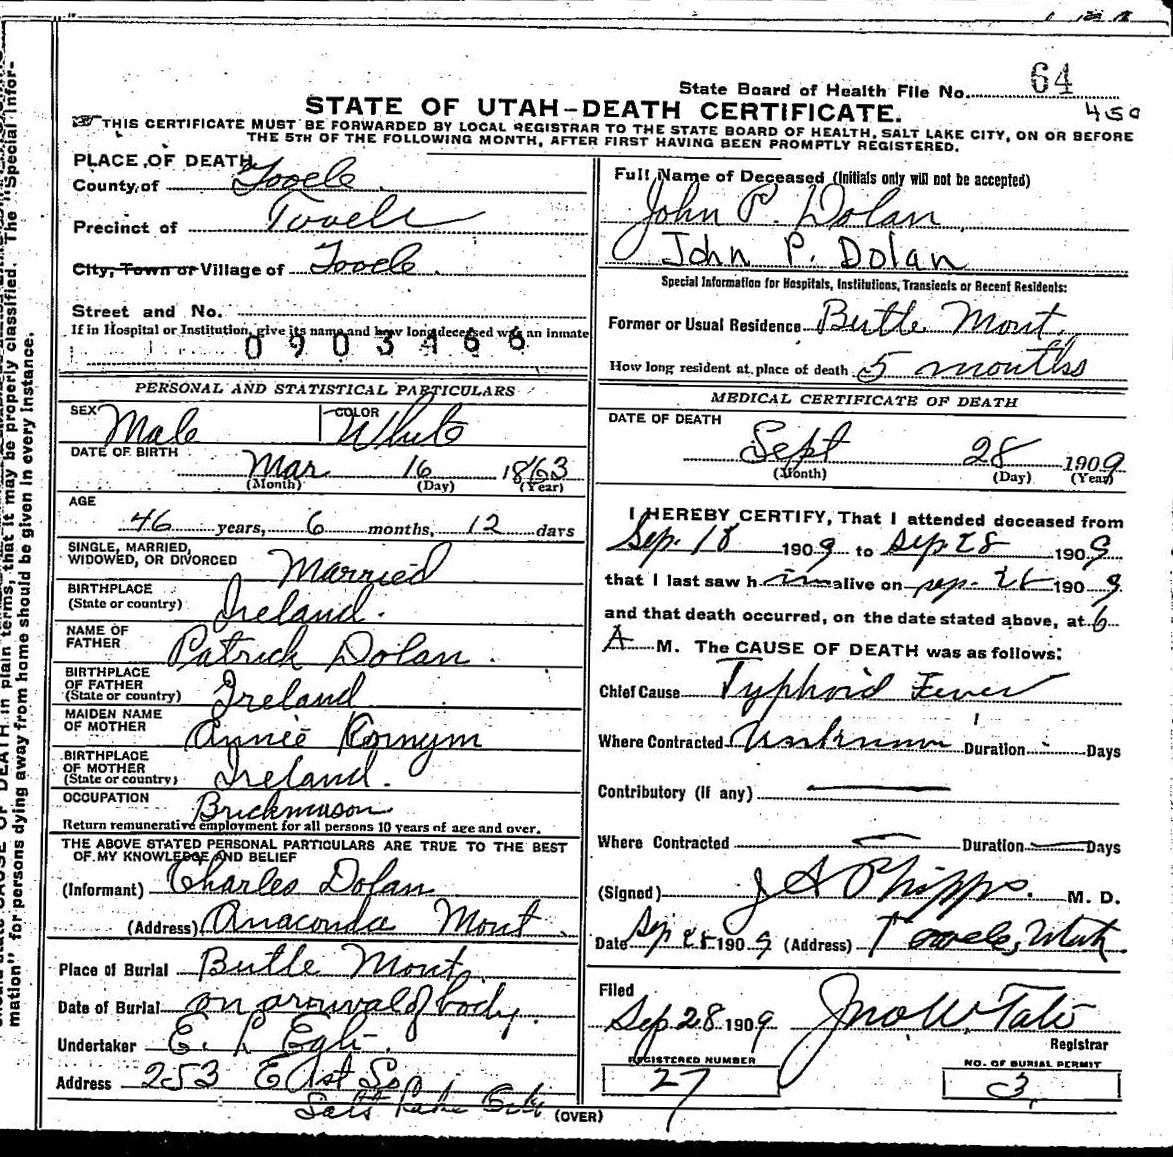 State Board of Health File No. 64
450
STATE OF UTAH-DEATH CERTIFICATE.
THIS CERTIFICATE MUST BE FORWARDED BY LOCAL REGISTRAR TO THE STATE BOARD OF HEALTH, SALT LAKE CITY, ON OR BEFORE
THE 5TH OF THE FOLLOWING MONTH, AFTER FIRST HAVING BEEN PROMPTLY REGISTERED.
PLACE OF DEATH
County of Tooele
Precinct of Tooele
City, Town or Village of Tooele
Street and No.
If in Hospital or Institution, give its name and how long deceased was an inmate
0903466
PERSONAL AND STATISTICAL PARTICULARS
SEX Male COLOR White
DATE OF BIRTH
Mar 16 1863
(Month) (Day) (Year)
AGE
46 years, 6 months, 12 days
SINGLE, MARRIED,
WIDOWED, OR DIVORCED Married
BIRTHPLACE
(State or country) Ireland.
NAME OF
FATHER Patrick Dolan.
BIRTHPLACE
OF FATHER
(State or country) Ireland
MAIDEN NAME
OF MOTHER Annie
BIRTHPLACE
OF MOTHER
(State or country) Ireland.
OCCUPATION Brickmason
Return remunerative employment for all persons 10 years of age and over.
THE ABOVE STATED PERSONAL PARTICULARS ARE TRUE TO THE BEST
OF MY KNOWLEDGE AND BELIEF
(Informant) Charles Dolan
(Address) Anaconda Mont.
Place of Burial Butte Mont.
Date of Burial on arrival of body.
Undertaker E. L Egli.
Address 253 East So
Salt Lake City
(OVER)
Full Name of Deceased (Initials only will not be accepted)
John P. Dolan
John P. Dolan
Special Information for Hospitals, Institutions, Transients or Recent Residents:
Former or Usual Residence Butte Mont.
How long resident at place of death 5 months
MEDICAL CERTIFICATE OF DEATH
DATE OF DEATH
Sept 28 1909
(Month) (Day) (Year)
I HEREBY CERTIFY, That I attended deceased from
Sep. 18 1909 to Sep 28 1909
that I last saw him alive on Sep. 28 1909
and that death occurred, on the date stated above, at 6
A M. The CAUSE OF DEATH was as follows:
Chief Cause Typhoid Fever
Where Contracted Unknown Duration Days
Contributory (if any) —
Where Contracted — Duration — Days
(Signed) J A Phipps. M. D.
Date Sep 28 1909 (Address) Tooele, Utah
Filed
Sep. 28 1909 Jno W. Tate
Registrar
REGISTERED NUMBER
27
NO. OF BURIAL PERMIT
3
CAUSE OF DEATH in plain terms, that it may be properly classified. The "Special Infor-
mation" for persons dying away from home should be given in every instance.